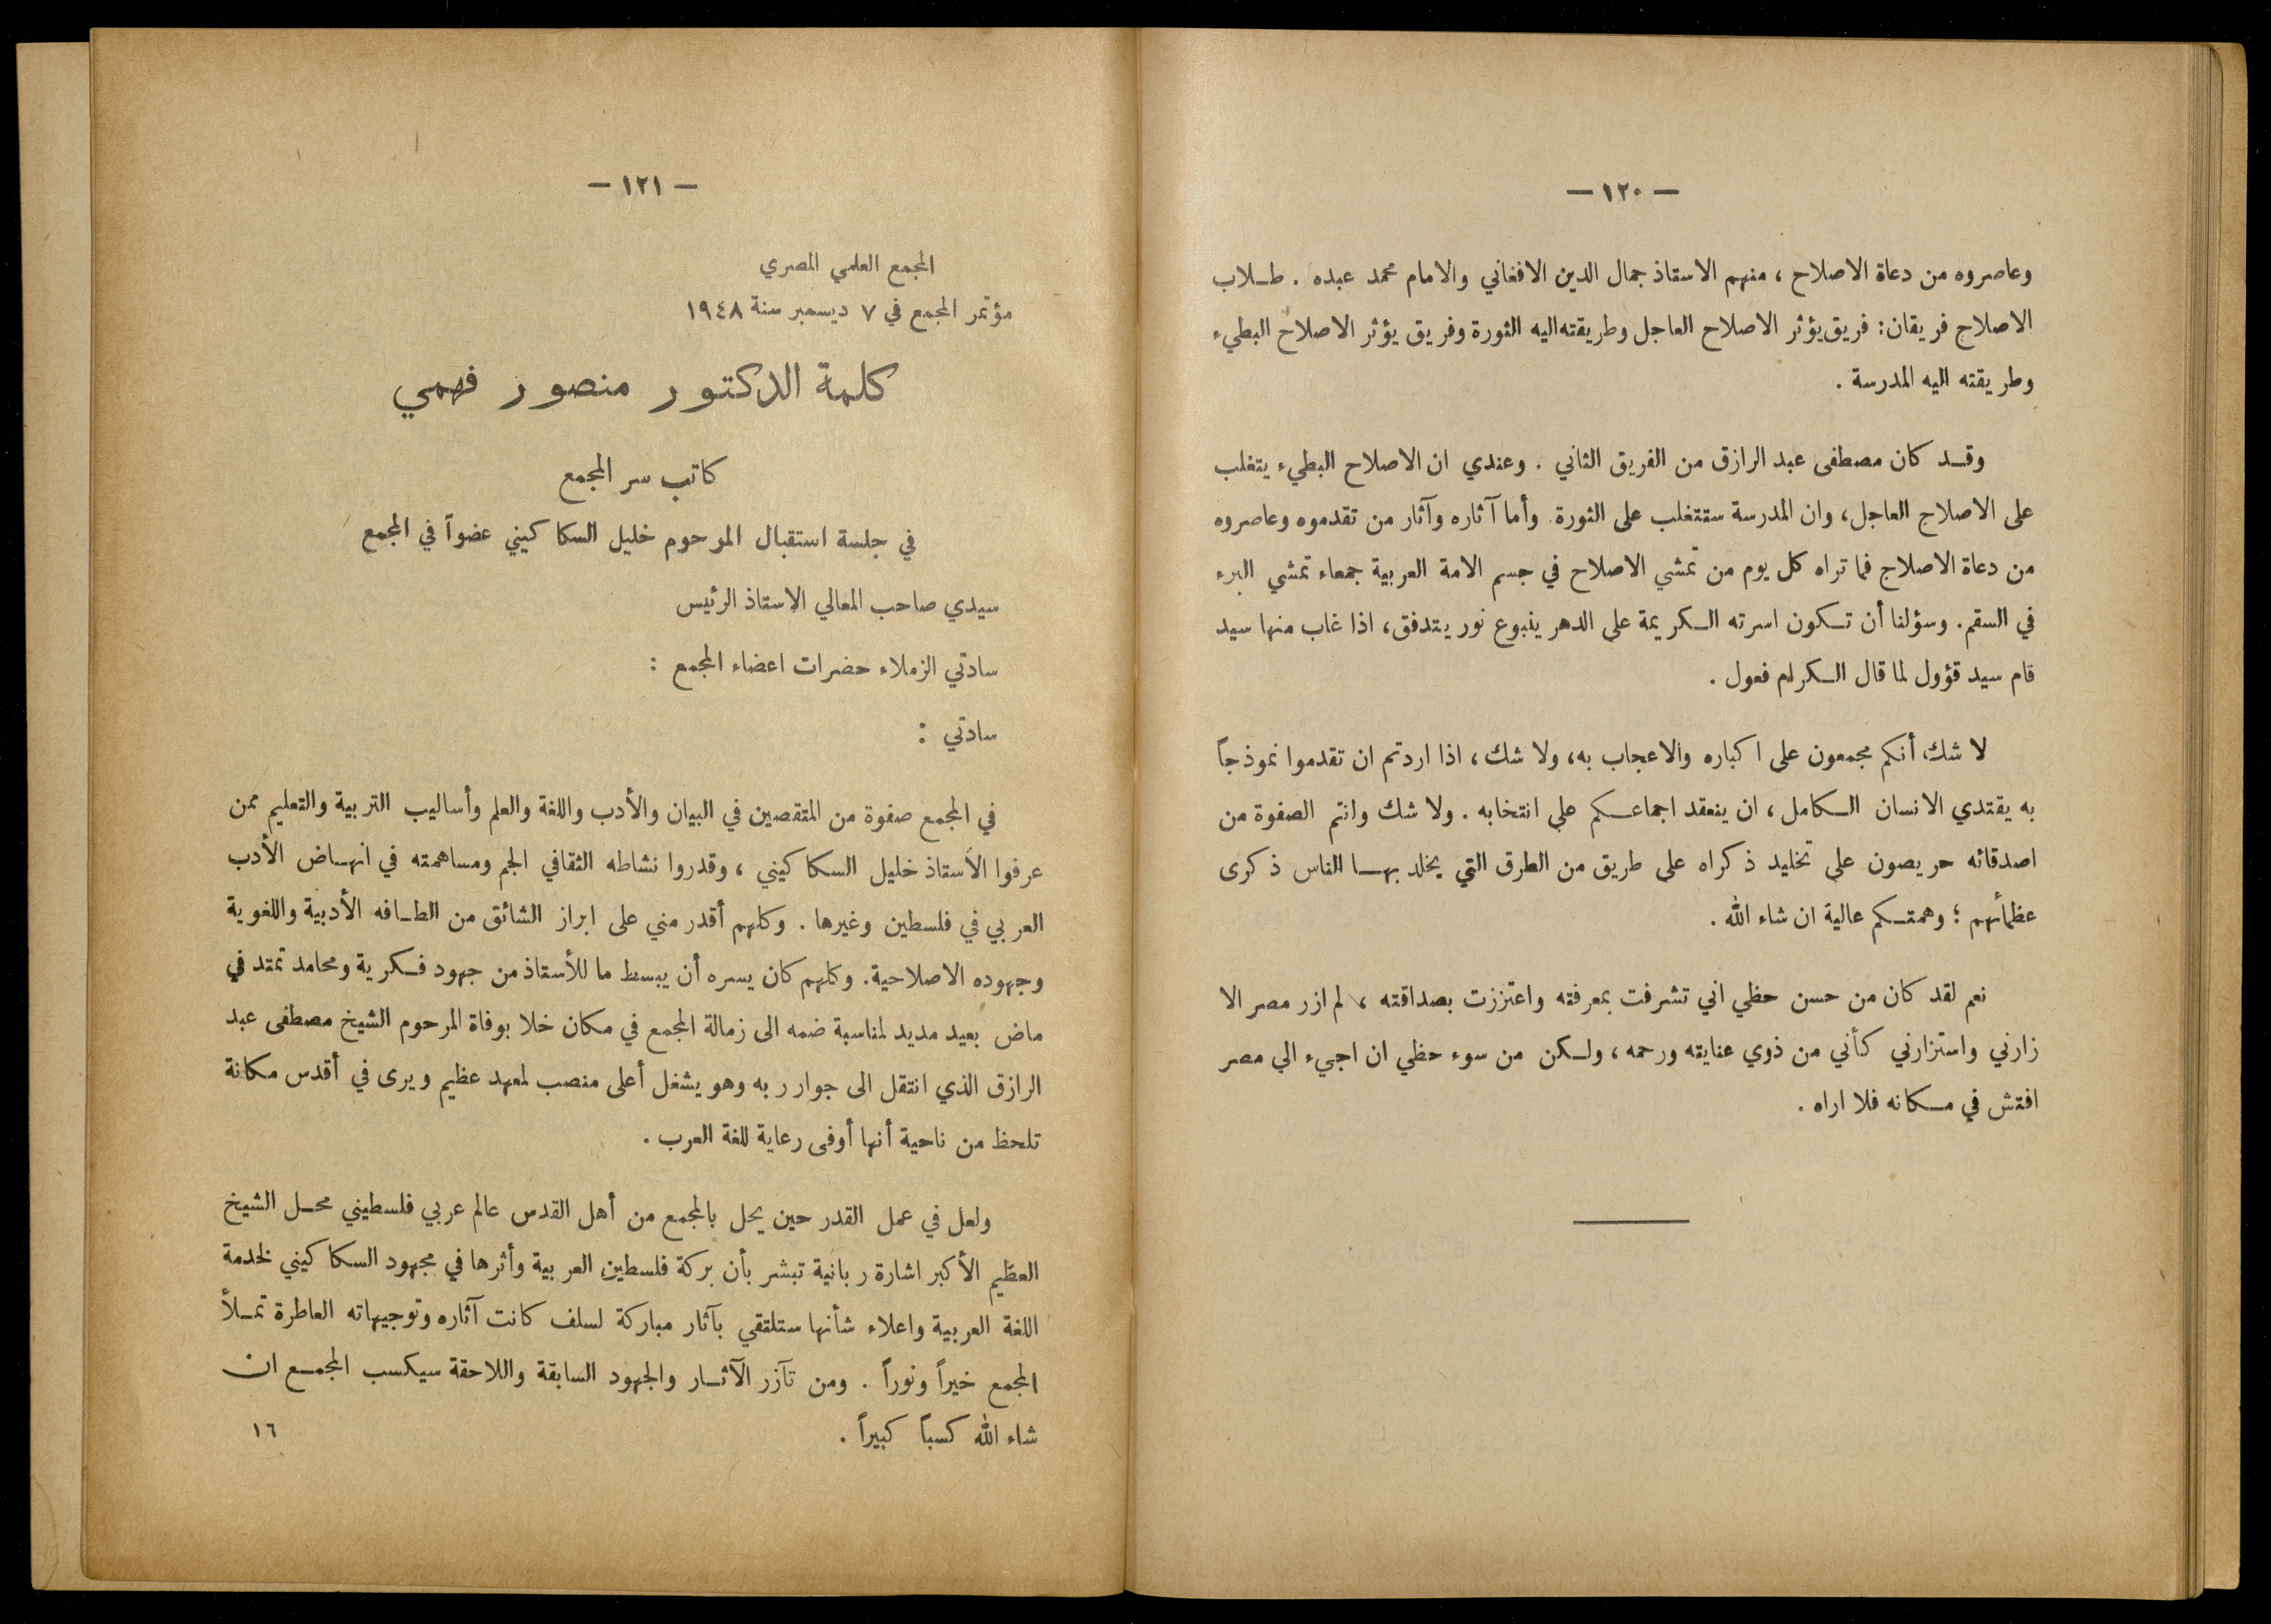 — ١٢٠ —
وعاصروه من دعاة الاصلاح ، منهم الاستاذ جمال الدين الافغاني والامام محمد عبده . طلاب
الاصلاح فريقان : فريق يؤثر الاصلاح العاجل وطريقته اليه الثورة وفريق يؤثر الاصلاح البطيء
وطريقته اليه المدرسة .
وقد كان مصطفى عبد الرازق من الفريق الثاني . وعندي ان الاصلاح البطيء يتغلب
على الاصلاح العاجل ، وان المدرسة ستتغلب على الثورة . وأما آثاره وآثار من تقدموه وعاصروه
من دعاة الاصلاح فما تراه كل يوم من تمشي الاصلاح في جسم الامة العربية جمعاء تمشي البرء
في السقم . وسؤلنا أن تكون اسرته الكريمة على الدهر ينبوع نور يتدفق ، اذا غاب منها سيد
قام سيد قؤول لما قال الكرام فعول .
لا شك أنكم مجمعون على اكباره والاعجاب به ، ولا شك ، اذا اردتم ان تقدموا نموذجاً
به يقتدي الانسان الكامل ، ان ينعقد اجماعكم على انتخابه . ولا شك وانتم الصفوة من
اصدقائه حريصون على تخليد ذكراه على طريق من الطرق التي يخلد بها الناس ذكرى
عظمائهم ؛ وهمتكم عالية ان شاء الله .
نعم لقد كان من حسن حظي اني تشرفت بمعرفته واعتززت بصداقته ، لم ازر مصر الا
زارني واستزارني كأني من ذوي عنايته ورحمه ، ولكن من سوء حظي ان اجيء الى مصر
افتش في مكانه فلا اراه .
— ١٢١ —
المجمع العلمي المصري
مؤتمر المجمع في ٧ ديسمبر سنة ١٩٤٨
كلمة الدكتور منصور فهمي
كاتب سر المجمع
في جلسة استقبال المرحوم خليل السكاكيني عضواً في المجمع
سيدي صاحب المعالي الاستاذ الرئيس
سادتي الزملاء حضرات اعضاء المجمع :
سادتي :
في المجمع صفوة من المتقصين في البيان والأدب واللغة والعلم وأساليب التربية والتعليم ممن
عرفوا الأستاذ خليل السكاكيني ، وقدروا نشاطه الثقافي الجم ومساهمته في انهاض الأدب
العربي في فلسطين وغيرها . وكلهم أقدر مني على ابراز الشائق من الطافه الأدبية واللغوية
وجهوده الاصلاحية . وكلهم كان يسره أن يبسط ما للأستاذ من جهود فكرية ومحامد تمتد في
ماض بعيد مديد لمناسبة ضمه الى زمالة المجمع في مكان خلا بوفاة المرحوم الشيخ مصطفى عبد
الرازق الذي انتقل الى جوار ربه وهو يشغل أعلى منصب لمعهد عظيم ويرى في أقدس مكانة
تلحظ من ناحية أنها أوفى رعاية للغة العرب .
ولعل في عمل القدر حين يحل بالمجمع من أهل القدس عالم عربي فلسطيني محل الشيخ
العظيم الأكبر اشارة ربانية تبشر بأن بركة فلسطين العربية وأثرها في مجهود السكاكيني لخدمة
اللغة العربية واعلاء شأنها ستلتقي بآثار مباركة لسلف كانت آثاره وتوجيهاته العاطرة تملأ
المجمع خيراً ونوراً . ومن تآزر الآثار والجهود السابقة واللاحقة سيكسب المجمع ان
شاء الله كسباً كبيراً .
١٦